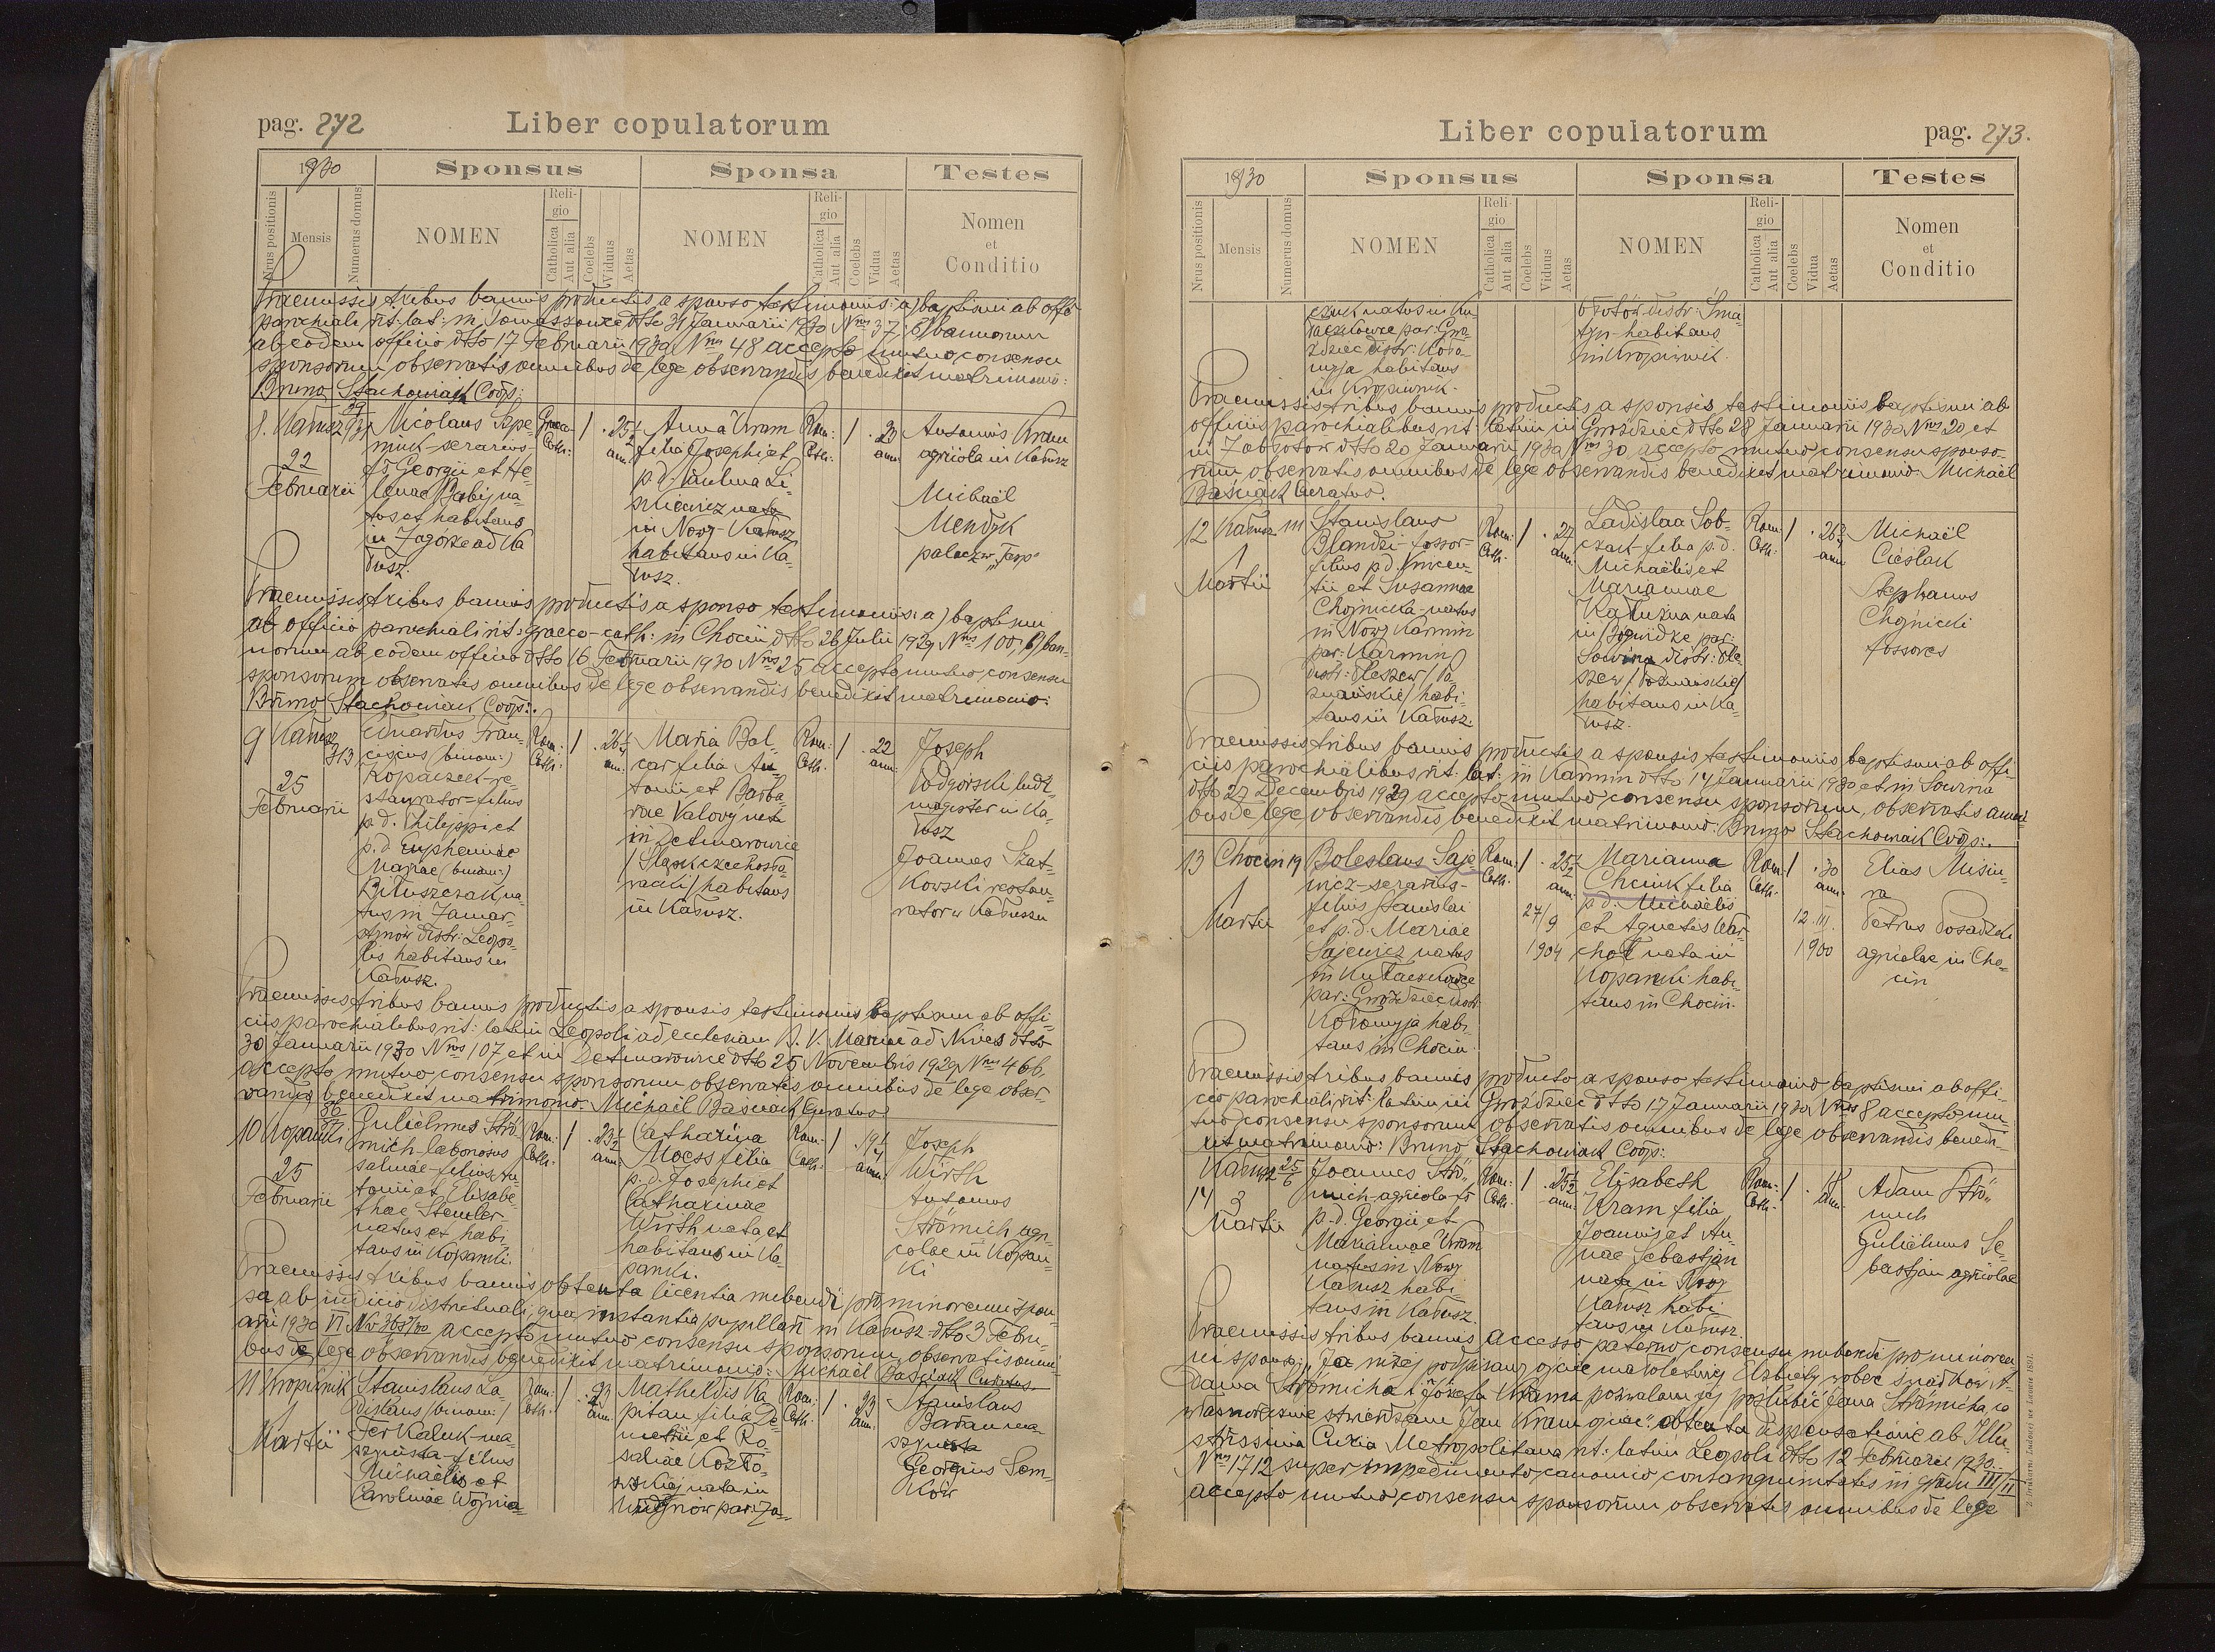 pag. 272
Liber copulatorum
1930
Sponsus
Sponsa
Testes
Nrus positionis
Mensis
Numerus domus
NOMEN
Religio
Catholica
Aut alia
Coelebs
Viduus
Aetas
NOMEN
Religio
Catholica
Aut alia
Coelebs
Vidua
Aetas
Nomen
et
Conditio
Praemissis tribus bannis productis a sponso testimoniis: a) baptismi ab offo
parochiali rit: lat: in dtto 31 Januarii 1930 Nrus 37; b) bannorum
ab eodem officio dtto 17 Februarii 1930 Nrus 48 accepto mutuo consensu
sponsorum observatis omnibus de lege observandis benedixit matrimonio:
Bruno Stachowiak Coop:
8. Kałusz
22
Februarii
Nicolaus
fs Georgii et He-
lenae Babij na-
tus et habitans
in Zagórze ad Ka-
łusz.
Graeco
Cath:
1
25½
ann:
Anna Kram
filia Josephi et
p.d. Paulina Li-
nata
in Nowy-Kałusz
habitans in Ka-
łusz.
Rom:
Cath:
1
ann:
Antonius Kram
agricola in Kałusz
Michaël
Mendyk
palacz w
Praemissis tribus bannis productis a sponso testimoniis: a) baptismi
ab officio parochiali rit: graeco-cath: in Chocin dtto 26 Julii 1929 Nrus 100; b) ban-
norum ab eodem officio dtto 16 Februarii 1930 Nrus 25 accepto mutuo consensu
sponsorum observatis omnibus de lege observandis benedixit matrimonio:
Bruno Stachowiak Coop:.
9 Kałusz
313
25
Februarii
Eduardus Fran-
ciscus (binom:)
Kopaczek-re-
staurator-filius
p.d. Philippi et
p.d Euphemiae
Mariae (binom:)
Bituszczak na-
tus in Jamar-
stynów distr: Leopo-
lis habitans in
Kałusz.
Rom:
Cath:
1
26¼
ann:
Maria Bal-
car filia An-
tonii et Barba-
rae Valovy nata
in Detmarowice
/Śląsk czechosło-
wacki/ habitans
in Kałusz.
Rom:
Cath:
1
22
ann:
Joseph
Podgórski
magister in Ka-
łusz
Joannes Szat-
kowski restau-
rator w Kałuszu
Praemissis tribus bannis productis a sponsis testimoniis baptismi ab offi-
ciis parochialibus rit: latin Leopoli ad ecclesiam B. V. Mariae ad Nives dtto
30 Januarii 1930 Nrus 107 et in Detmarowice dtto 25 Novembris 1929 Nrus 466.
accepto mutuo consensu sponsorum observatis omnibus de lege obser-
vandis benedixit matrimonio: Michaël Baściak Curatus
10 Kopanki
25
Februarii
Gulielmus Strö-
mich laborosus
salinae-filius An-
tonii et Elisabe-
thae Stenzler
natus et habi-
tans in Kopanki.
Rom:
Cath:
1
23½
ann:
Catharina
Moess filia
p.d. Josephi et
Catharinae
Wirth nata et
habitans in Ko-
panki.
Rom:
Cath:
1
19¼
ann:
Joseph
Wirth
Antonius
Strömich agri-
colae in Kopan-
ki
Praemissis tribus bannis obtenta licentia nubendi pro minorenni spon-
sa ab judicio districtuali qua instantia pupillari in Kałusz dtto 3 Febru-
arii 1930 accepto mutuo consensu sponsorum observatis omni-
bus de lege observandis benedixit matrimonio: Michaël Baściak Curatus
11 Kropiwnik
1
Martii
Stanislaus La-
dislaus (binom:)
Ferkaluk-ma-
szynista-filius
Michaëlis et
Carolinae Wojnia-
Rom:
Cath:
1
23
ann:
Mathildis Ka-
pitan filia De-
metrii et Ro-
saliae Kozło-
wskiej nata in
par: Za-
Rom:
Cath:
1
23
ann:
Stanislaus
Baran ma-
szynista
Georgius Sem-
ków
Liber copulatorum
pag. 273.
1930
Sponsus
Sponsa
Testes
Nrus positionis
Mensis
Numerus domus
NOMEN
Religio
Catholica
Aut alia
Coelebs
Viduus
Aetas
NOMEN
Religio
Catholica
Aut alia
Coelebs
Vidua
Aetas
Nomen
et
Conditio
czuk natus in Ku-
łaczkowce par: Gwo-
ździec distr: Koło-
myja habitans
in Kropiwnik.
błotów distr: Śnia-
tyn-habitans
in Kropiwnik.
Praemissis tribus bannis productis a sponsis testimoniis baptismi ab
officiis parochialibus rit: latin in Gwoździec dtto 28 Januarii 1930 Nrus 20 et
in Zabłotów dtto 20 Januarii 1930 Nrus 30 accepto mutuo consensu sponso-
rum observatis omnibus de lege observandis benedixit matrimonio Michaël
Baściak Curatus.
12 Kałusz 111
1
Martii
Stanislaus
Blandzi-fossor-
filius p.d Vincen-
tii et Susannae
Chojnicka-natus
in Nowy Karmin
par: Karmin
distr: Pleszew /Po-
znańskie/ habi-
tans in Kałusz.
Rom:
Cath:
1
27
ann:
Ladislaa Sob-
czak-filia p.d.
Michaëlis et
Mariannae
Kałużna nata
in par:
Sowina distr: Ple-
szew /Poznańskie/
habitans in Ka-
łusz.
Rom:
Cath:
1
26¾
ann
Michaël
Cieślak
Stephanus
Chojnicki
fossores
Praemissis tribus bannis productis a sponsis testimoniis baptismi ab offi-
ciis parochialibus rit: lat: in Karmin dtto 14 Januarii 1930 et in Sowina
dtto 27 Decembris 1929 accepto mutuo consensu sponsorum, observatis omni-
bus de lege observandis benedixit matrimonio: Bruno Stachowiak Coop:.
13 Chocin 19
1
Martii
Boleslaus Saje-
wicz-serarius-
filius Stanislai
et p.d. Mariae
Sajewicz natus
in Kułaczkowce
par: Gwoździec distr:
Kołomyja habi-
tans in Chocin
Rom:
Cath:
1
25½
ann:
27/9
1904
Marianna
Cheink filia
p.d. Michaëlis
et Agnetis War-
choł nata in
Kopanki habi-
tans in Chocin.
Rom:
Cath:
1
30
ann:
12.III.
1900
Elias Misiu-
ra
Petrus Posadzki
agricolae in Cho-
cin
Praemissis tribus bannis producto a sponso testimonio baptismi ab offi-
cio parochiali rit: latin in Gwoździec dtto 17 Januarii 1930 Nrus 8 accepto mu-
tuo consensu sponsorum observatis omnibus de lege observandis benedi-
xit matrimonio: Bruno Stachowiak Coop:
Kałusz 25/6
14
3
Martii
Joannes Strö-
mich-agricola fs
p.d. Georgii et
Mariannae Kram
natus in Nowy
Kałusz habi-
tans in Kałusz.
Rom:
Cath:
1
25½
ann:
Elisabeth
Kram filia
Joannis et An-
nae Sebastjan
nata in Nowy
Kałusz habi-
tans in Kałusz.
Rom:
Cath:
1
18
ann:
Adam Strö-
mich
Gulielmus Se-
bastjan agricolae
Praemissis tribus bannis, accesso paterno consensu nubendi pro minoren-
ni sponsa: „Ja niżej podpisany ojciec małoletniej Elżbiety wobec świadków A-
dama Strömicha i Józefa Krama pozwalam jej poślubić Jana Strömicha co
własnoręcznie stwierdzam Jan Kram ojciec" obtenta dispensatione ab Illu-
strissima Curia Metropolitana rit: latin Leopoli dtto 12 Februarii 1930.
Nrus 1712 super impedimento canonico consanguinitatis in gradu III/II
accepto mutuo consensu sponsorum observatis omnibus de lege